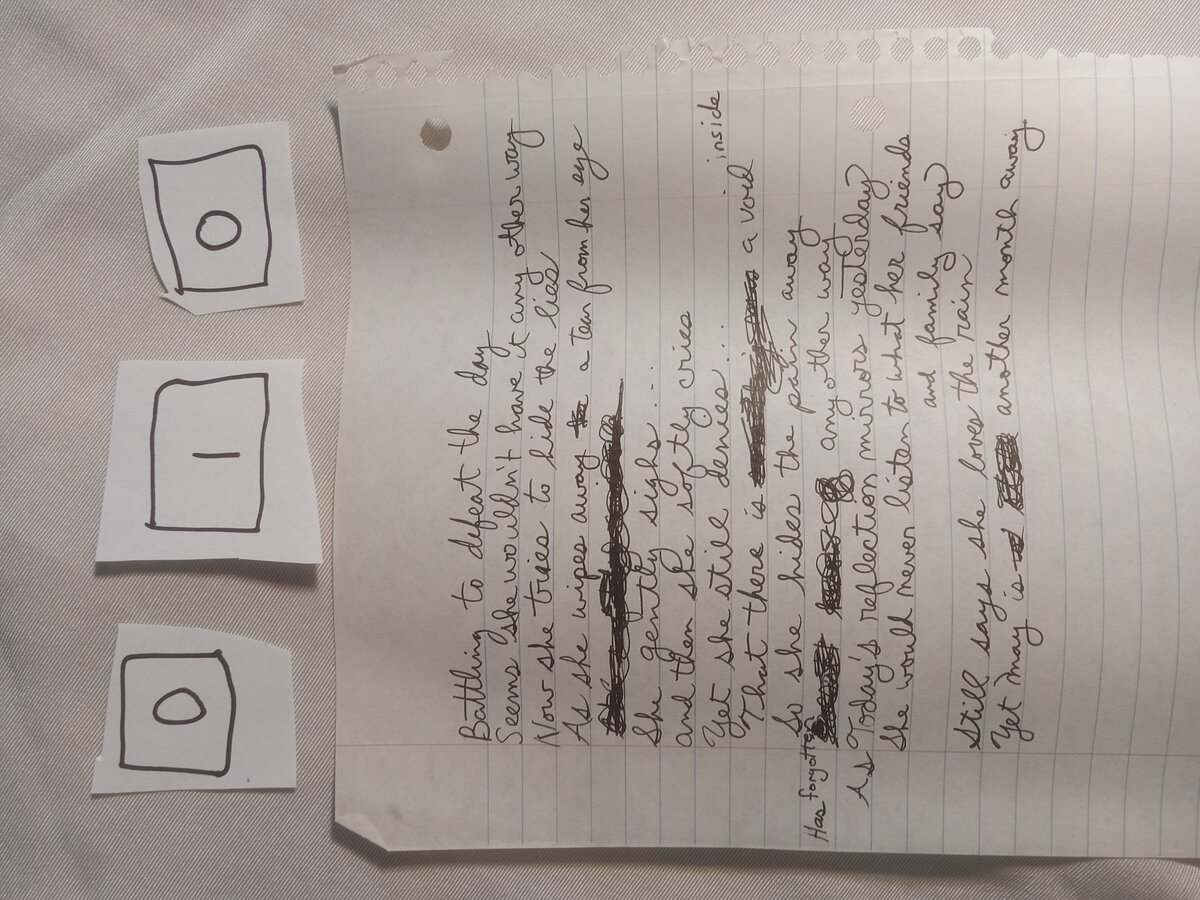 0 1 0
Battling to defeat the day
Seems she wouldn't have it any other way
Now she tries to hide the lies
As she wipes away a tear from her eye
She gently sighs....
and then she softly cries
Yet she still denies...
That there is a void inside
So she hides the pain away
Has forgotten any other way
As Today's reflection mirrors yesterday
She would never listen to what her friends
and family say
Still says she loves the rain
Yet May is another month away